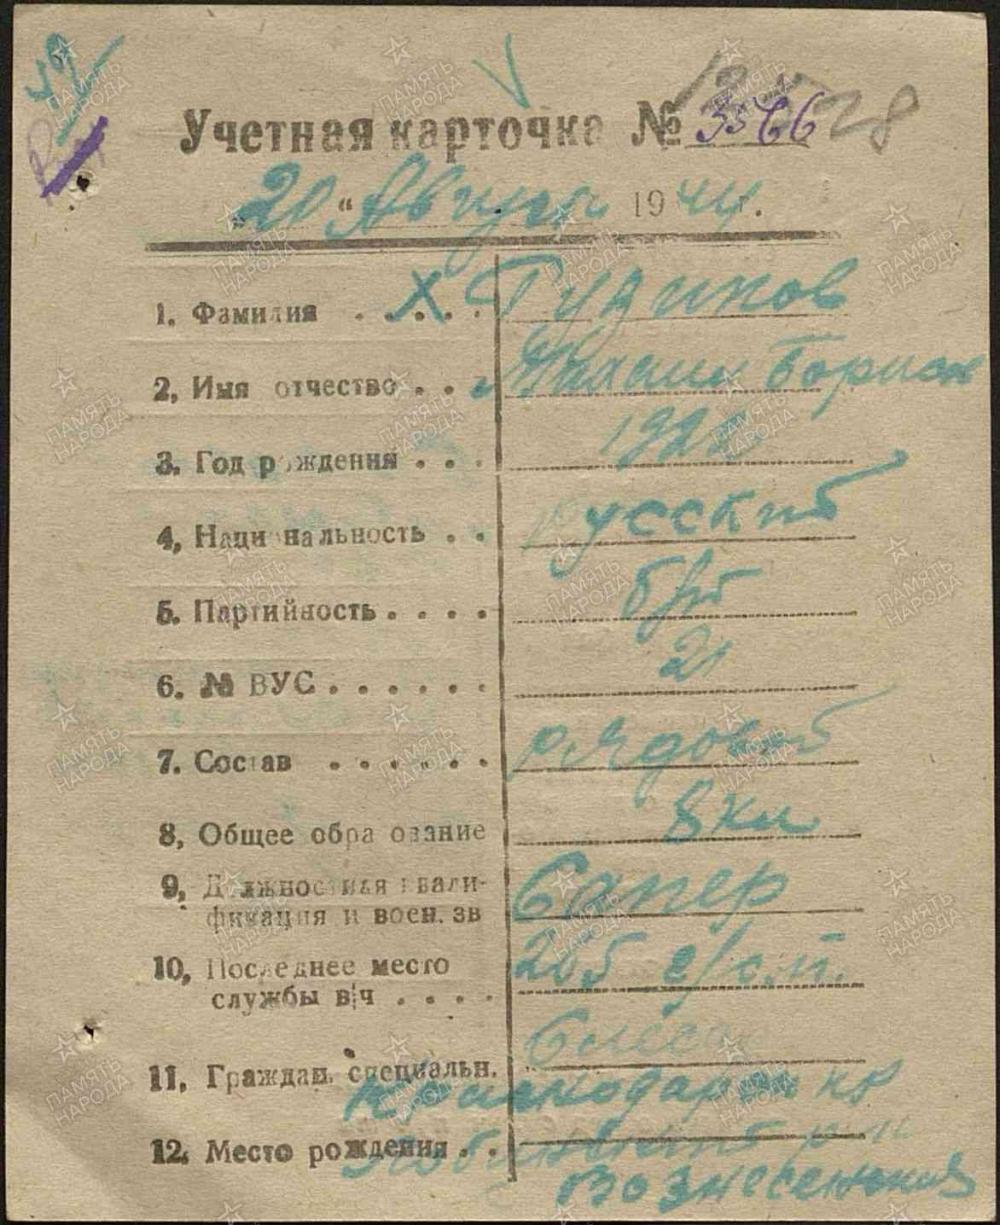 Учетная карточка № 3566
„20“ Август 1944 г.
1. Фамилия
2. Имя отчество Борисов
3. Год рождения 1922
4. Национальность русский
5. Партийность б/п
6. № ВУС 21
7. Состав рядовой
8. Общее образование 8 кл
9. Должностная квали-
фикация и воен. зв Сапер
10. Последнее место
службы в/ч 205 с/с.п.
11. Граждан. специальн. Слесарь
Краснодарск кр
12. Место рождения
ПАМЯТЬ НАРОДА